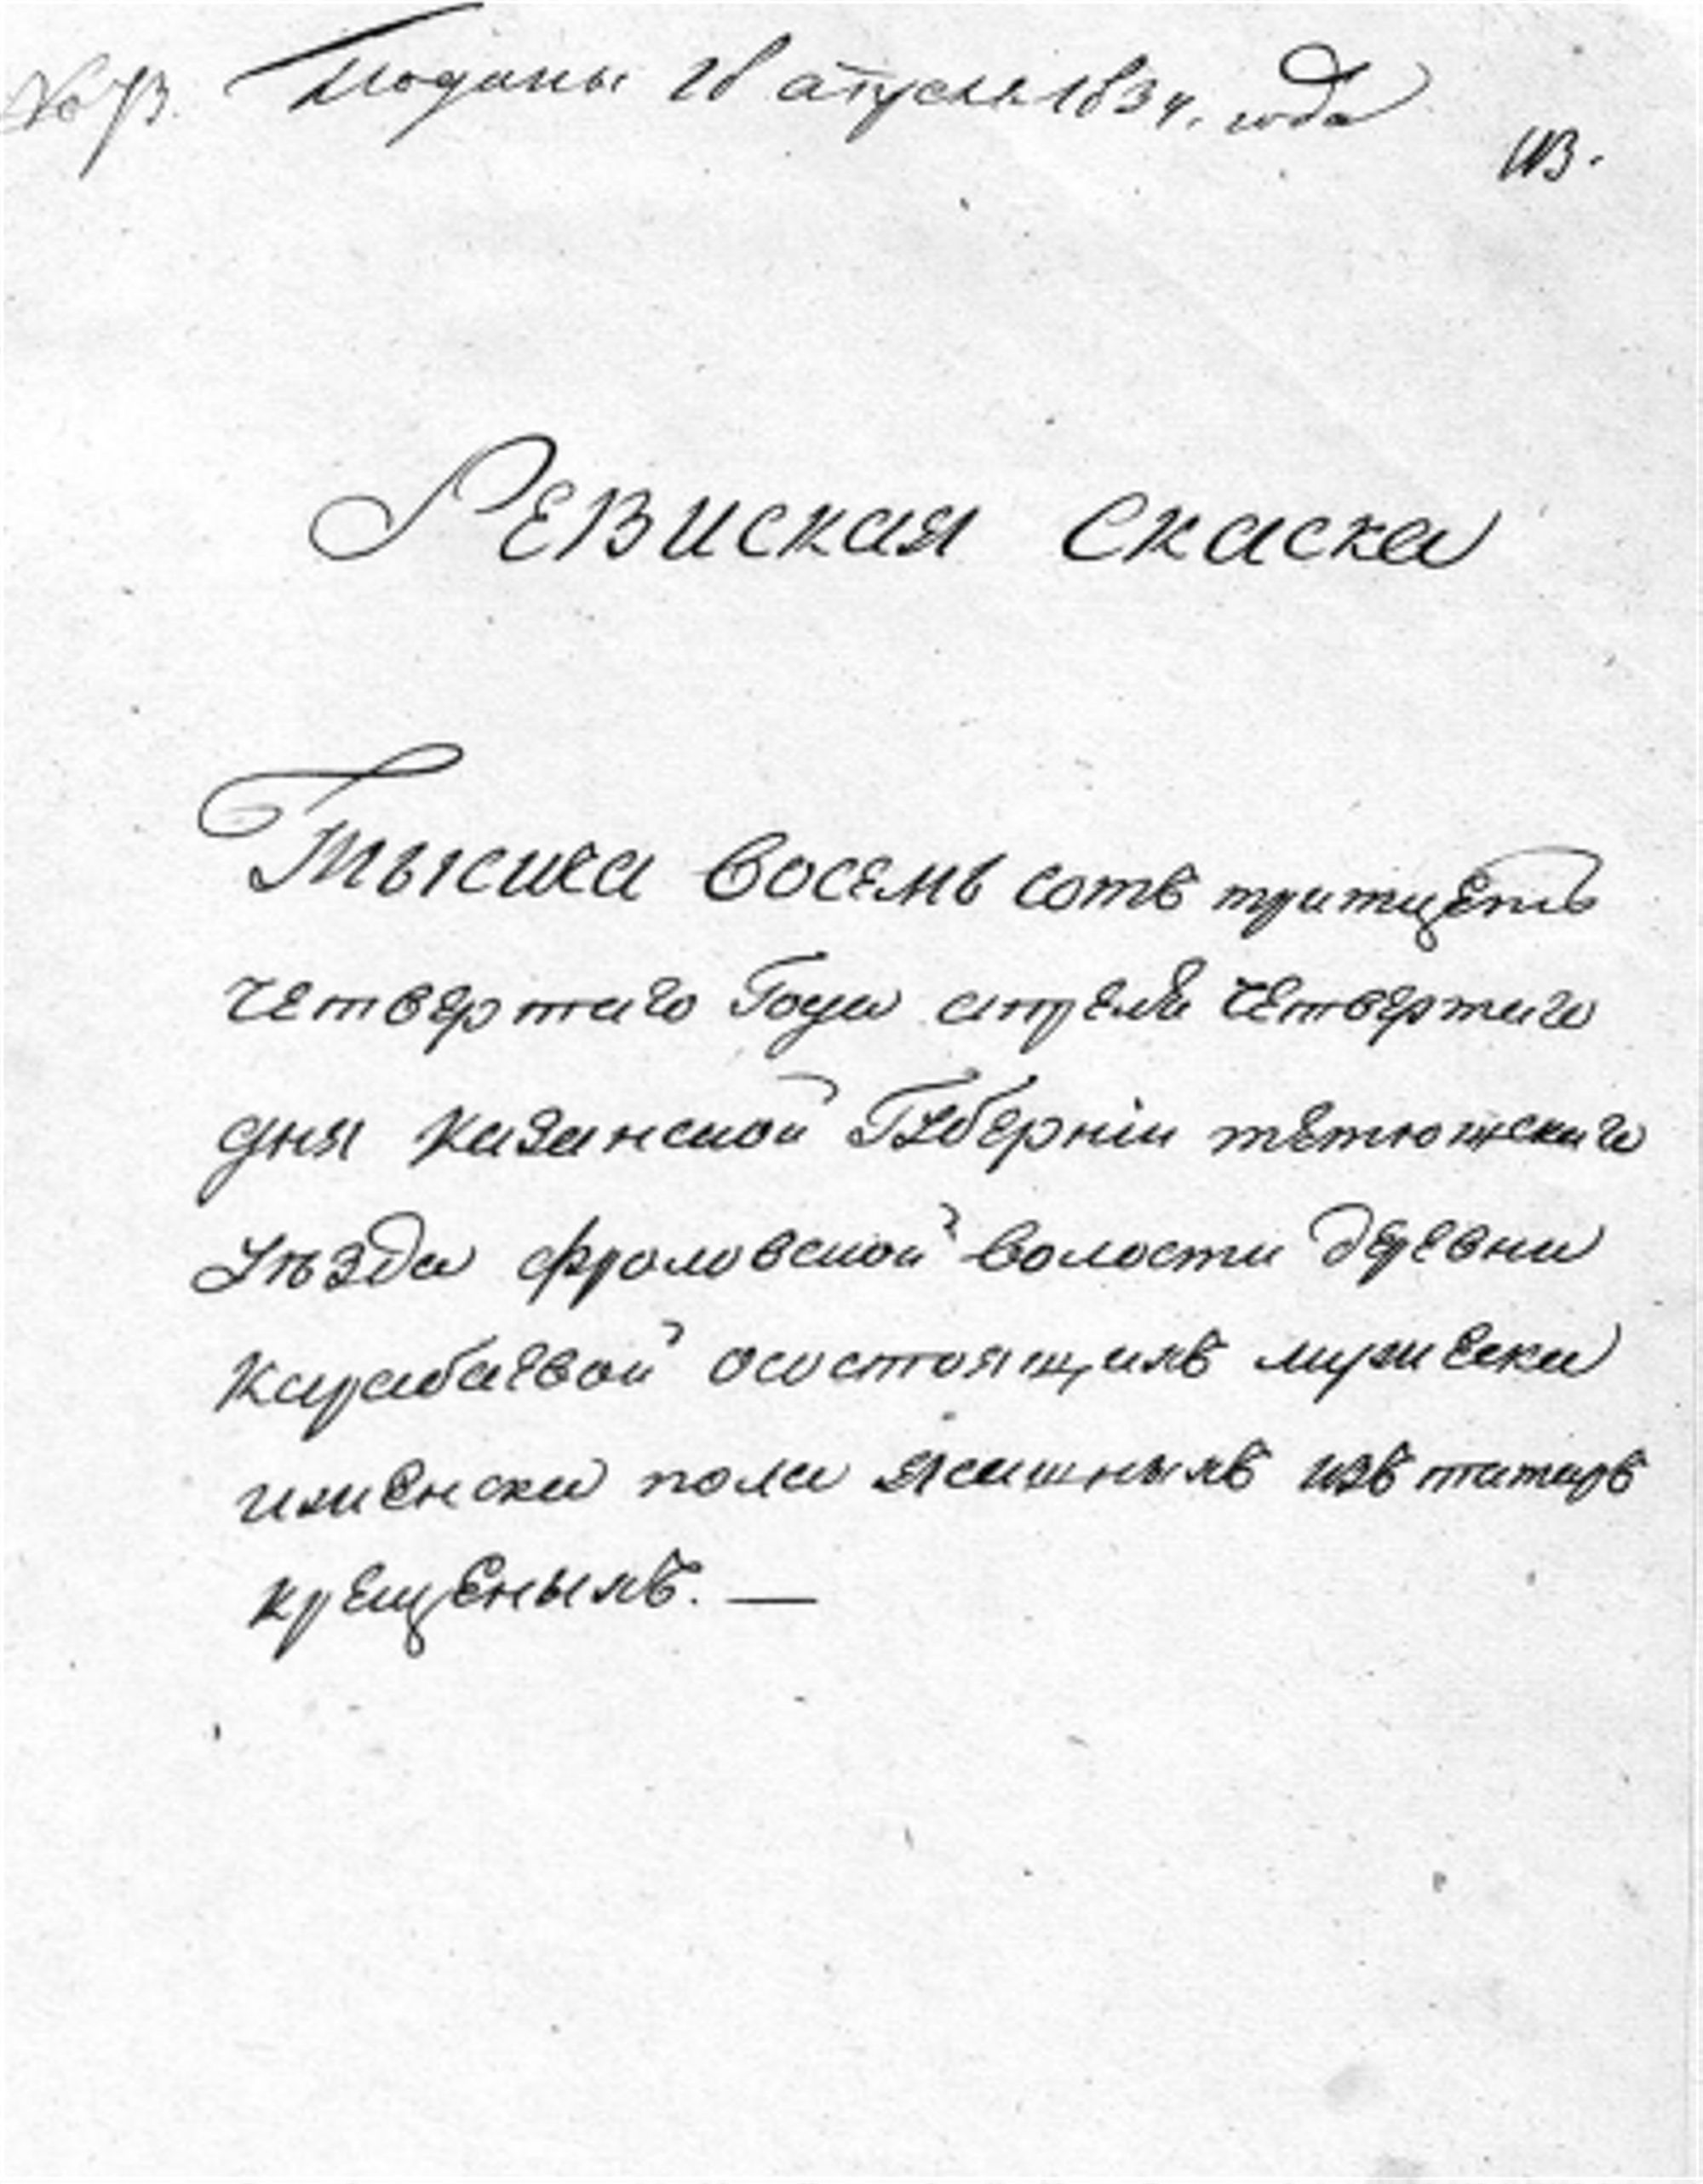 Поданы 28 апреля 1834. года
113.
Ревиская скаска
Тысяча восемь сотъ тритцеть
четвертаго Года апреля четвертаго
дня казанской Губерніи тетюшскаго
Уѣзда фроловской волости деревни
Карабаевой осостоящихъ мужеска
иженска пола ясашныхъ изъ татаръ
крещеныхъ. —